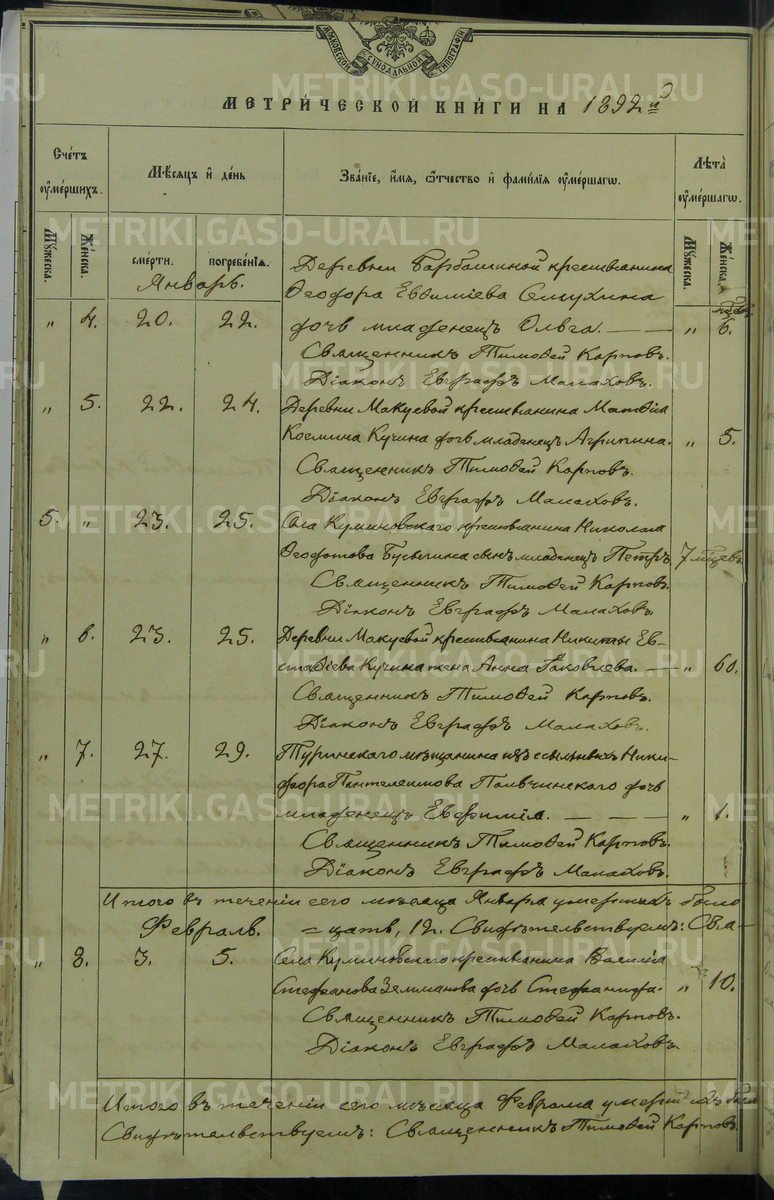 МЕТРИ́ЧЕСКОЙ КНИ́ГИ НА 1892 й
Сче́тъ ᲂу҆ме́ршихъ.
Мѣ́сяцъ и҆ де́нь
Зва́нїе, и҆́мя, ѻ҆́тчество и҆ фами́лїя ᲂу҆ме́ршагѡ.
Лѣ́та ᲂу҆ме́ршагѡ.
Мꙋ́жеска.
Же́нска.
сме́рти.
погребе́нїя.
Мꙋ́жеска.
Же́нска.
Январь.
Деревни Барбашиной крестьянина
Ѳеодора Евѳиміева Семухина
„ 4. 20. 22. дочь младенецъ Ольга. — — „ 6.
Священникъ Тимоѳей Карповъ.
Діаконъ Евграфъ Малаховъ.
„ 5. 22. 24. Деревни Макуевой крестьянина Матѳія
Космина Кучина дочь младенец Агрипина. „ 5.
Священникъ Тимоѳей Карповъ.
Діаконъ Евграфъ Малаховъ.
5. „ 23. 25. Села Куминовскаго крестьянина Николая
Ѳеофотова Бусыгина сынъ младенецъ Петръ 7 мѣсцевъ.
Священникъ Тимоѳей Карповъ.
Діаконъ Евграфъ Малаховъ.
„ 6. 23. 25. Деревни Макуевой крестьянина Никиты Ев-
стаѳіева Кучина жена Анна Іаковлева. — „ 60.
Священникъ Тимоѳей Карповъ.
Діаконъ Евграфъ Малаховъ.
„ 7. 27. 29. Туринскаго мѣщанина изъ ссыльныхъ Ники-
фора Пантелеимова Польчинскаго дочь
младенецъ Евфимія. — — — „ 1.
Священникъ Тимоѳей Карповъ.
Діаконъ Евграфъ Малаховъ.
Итого въ теченіи сего мѣсяца Января умершихъ было
Февраль. = цать, 12. Свидѣтельствуемъ: Свя-
„ 8. 3. 5. Села Куминовскаго крестьянина Василія
Стефанова Земманова дочь Стефанида. „ 10.
Священникъ Тимоѳей Карповъ.
Діаконъ Евграфъ Малаховъ.
Итого въ теченіи сего мѣсяца Февраля умершихъ было
Свидѣтельствуемъ: Священникъ Тимоѳей Карповъ.
METRIKI.GASO-URAL.RU